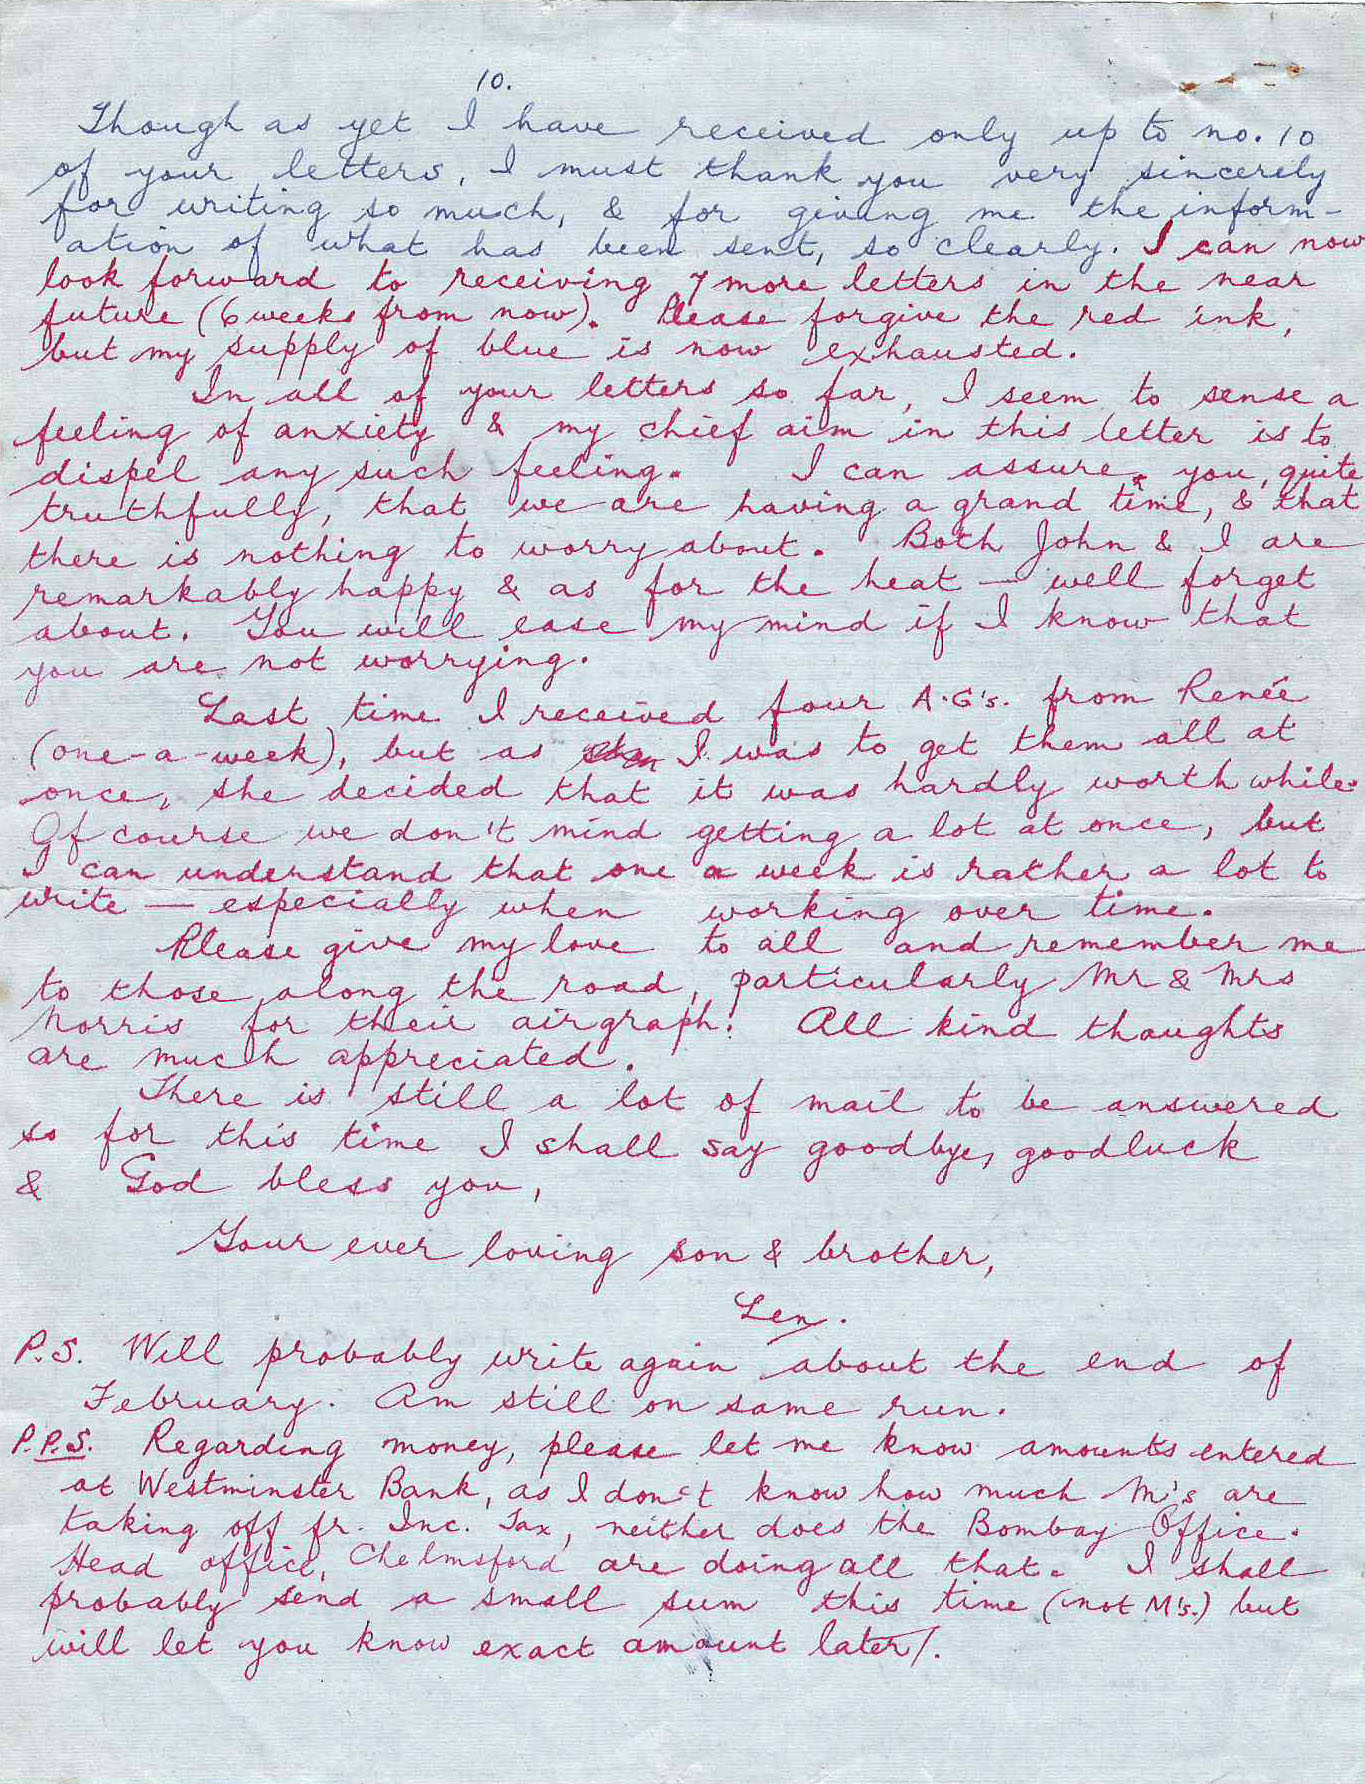 10.
Though as yet I have received only up to no. 10
of your letters, I must thank you very sincerely
for writing so much, & for giving me the inform-
ation of what has been sent, so clearly. I can now
look forward to receiving 7 more letters in the near
future (6 weeks from now). Please forgive the red ink,
but my supply of blue is now exhausted.
In all of your letters so far, I seem to sense a
feeling of anxiety & my chief aim in this letter is to
dispel any such feeling. I can assure you, quite
truthfully, that we are having a grand time, & that
there is nothing to worry about. Both John & I are
remarkably happy & as for the heat — well forget
about. You will ease my mind if I know that
you are not worrying.
Last time I received four A.G's. from Renée
(one-a-week), but as I was to get them all at
once, she decided that it was hardly worth while.
Of course we don't mind getting a lot at once, but
I can understand that one a week is rather a lot to
write — especially when working over time.
Please give my love to all and remember me
to those along the road, particularly Mr & Mrs
Norris for their airgraph. All kind thoughts
are much appreciated.
There is still a lot of mail to be answered
so for this time I shall say goodbye, goodluck
& God bless you,
Your ever loving son & brother,
Len.
P.S. Will probably write again about the end of
February. Am still on same run.
P.P.S. Regarding money, please let me know amounts entered
at Westminster Bank, as I don't know how much M's are
taking off fr. Inc. Tax, neither does the Bombay Office.
Head office, Chelmsford are doing all that. I shall
probably send a small sum this time (not M's.) but
will let you know exact amount later/.